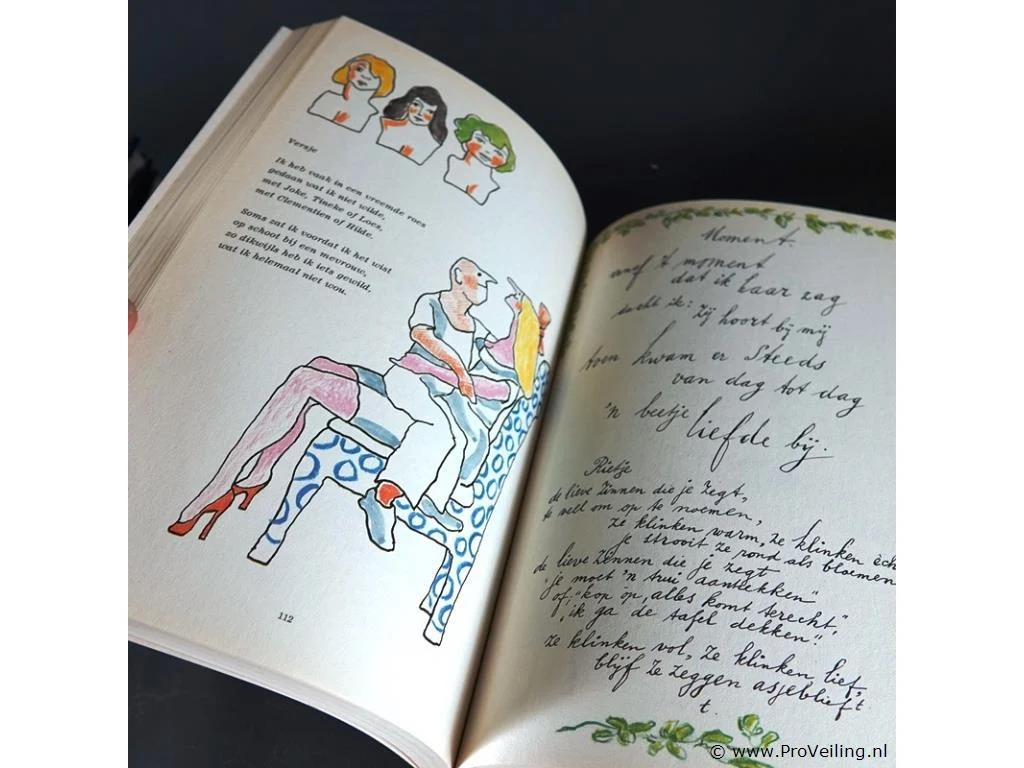 Versje
Ik heb vaak in een vreemde roes
gedaan wat ik niet wilde,
met Joke, Tineke of Loes,
met Clementien of Hilde.
Soms zat ik voordat ik het wist
op school bij een mevrouw,
zo dikwijls heb ik iets gewild,
wat ik helemaal niet wou.
112
Moment.
vanaf 't moment
dat ik haar zag
dacht ik: zij hoort bij mij
toen kwam er steeds
van dag tot dag
'n beetje liefde bij.
Rietje
de lieve zinnen die je zegt,
te veel om op te noemen,
ze klinken warm, ze klinken èch
je strooit ze rond als bloemen
de lieve zinnen die je zegt
"je moet 'n trui aantrekken"
of: "kop op, alles komt terecht,"
"ik ga de tafel dekken".
ze klinken vol, ze klinken lief,
blijf ze zeggen asjeblieft
t.
© www.ProVeiling.nl